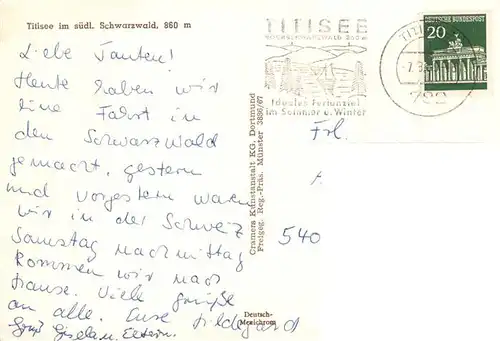 Titisee im südl. Schwarzwald, 860 m
Liebe Tanten!
Heute haben wir
eine Fahrt in
den Schwarzwald
gemacht, gestern
und vorgestern waren
wir in der Schweiz
Samstag nachmittag
kommen wir nach
hause. Viele Grüße
an alle. Eure Hildegard
Gruß Giselau. Eltern.
Deutsch-
Mexichrom
Cramers Kunstanstalt KG. Dortmund
Freigeg. Reg.-Präs. Münster 3886/67
TITISEE
HOCHSCHWARZWALD 860 m
Ideales Ferienziel
im Sommer u. Winter
DEUTSCHE BUNDESPOST
20
Frl.
540